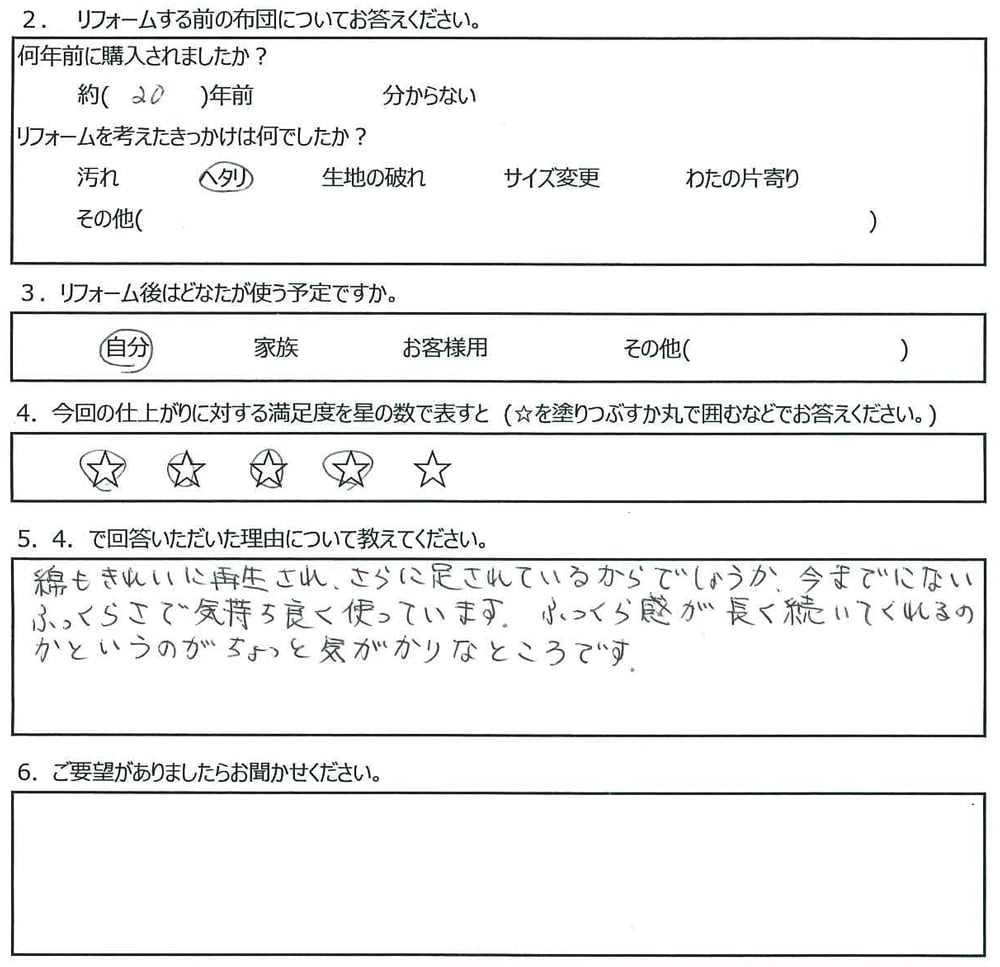 ２． リフォームする前の布団についてお答えください。
何年前に購入されましたか？
約( 20 )年前 分からない
リフォームを考えたきっかけは何でしたか？
汚れ ヘタリ 生地の破れ サイズ変更 わたの片寄り
その他( )
３．リフォーム後はどなたが使う予定ですか。
自分 家族 お客様用 その他( )
4．今回の仕上がりに対する満足度を星の数で表すと（☆を塗りつぶすか丸で囲むなどでお答えください。）
☆ ☆ ☆ ☆ ☆
5．4．で回答いただいた理由について教えてください。
綿もきれいに再生され、さらに足されているからでしょうか、今までにない
ふっくらさで気持ち良く使っています。ふっくら感が長く続いてくれるの
かというのがちょっと気がかりなところです。
6．ご要望がありましたらお聞かせください。